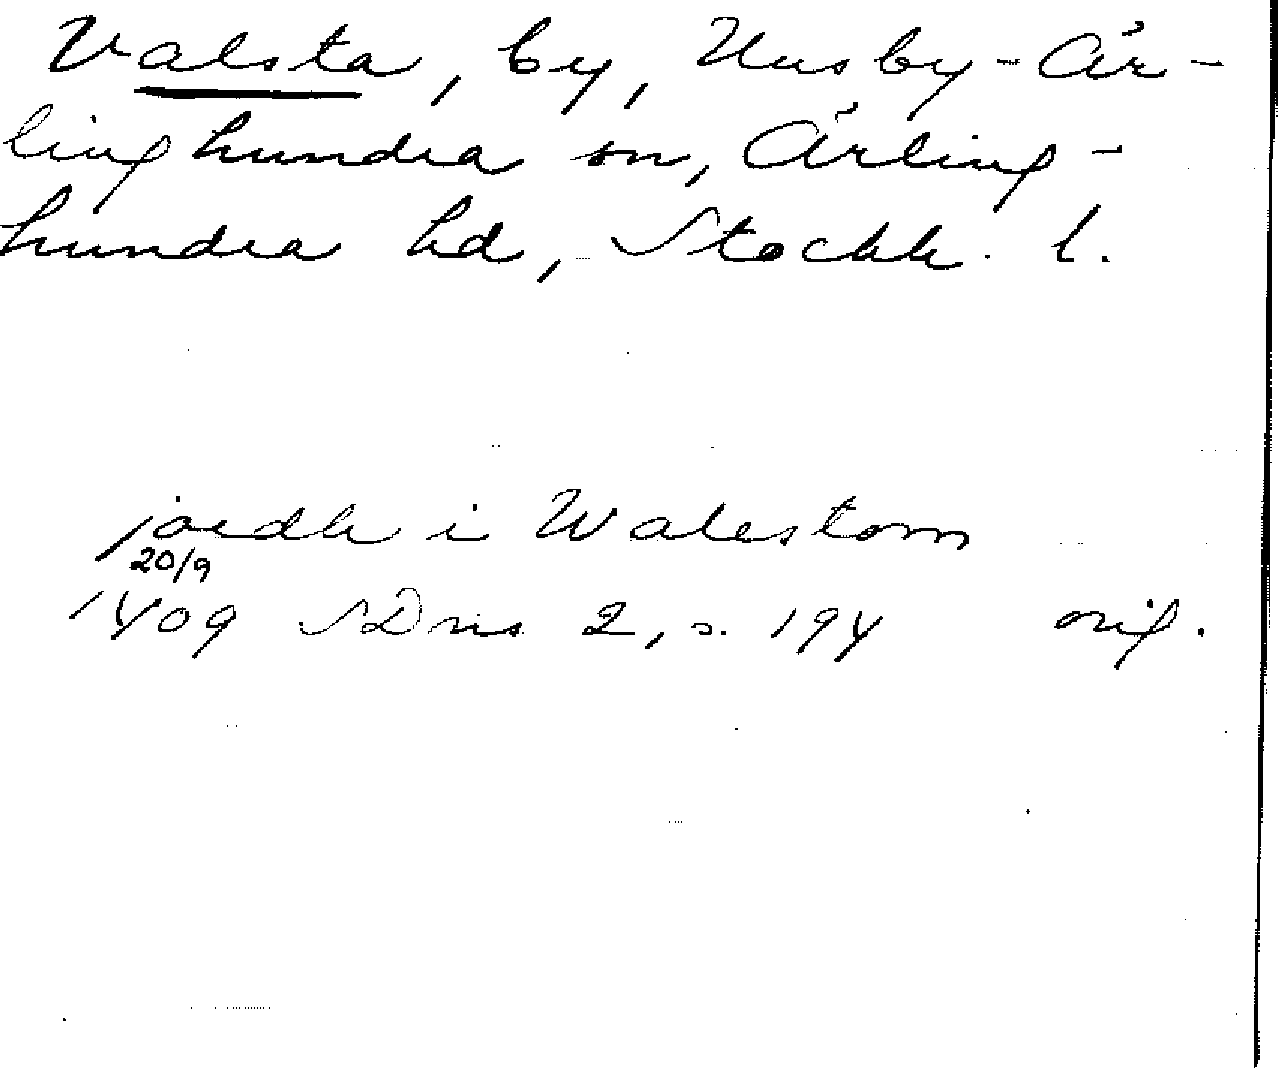 Valsta, by, Husby-Är-
linghundra sn, Ärling-
hundra hd, Stockh. l.
jordh i Walestom
20/9
1409 SDns 2, s. 194 orig.